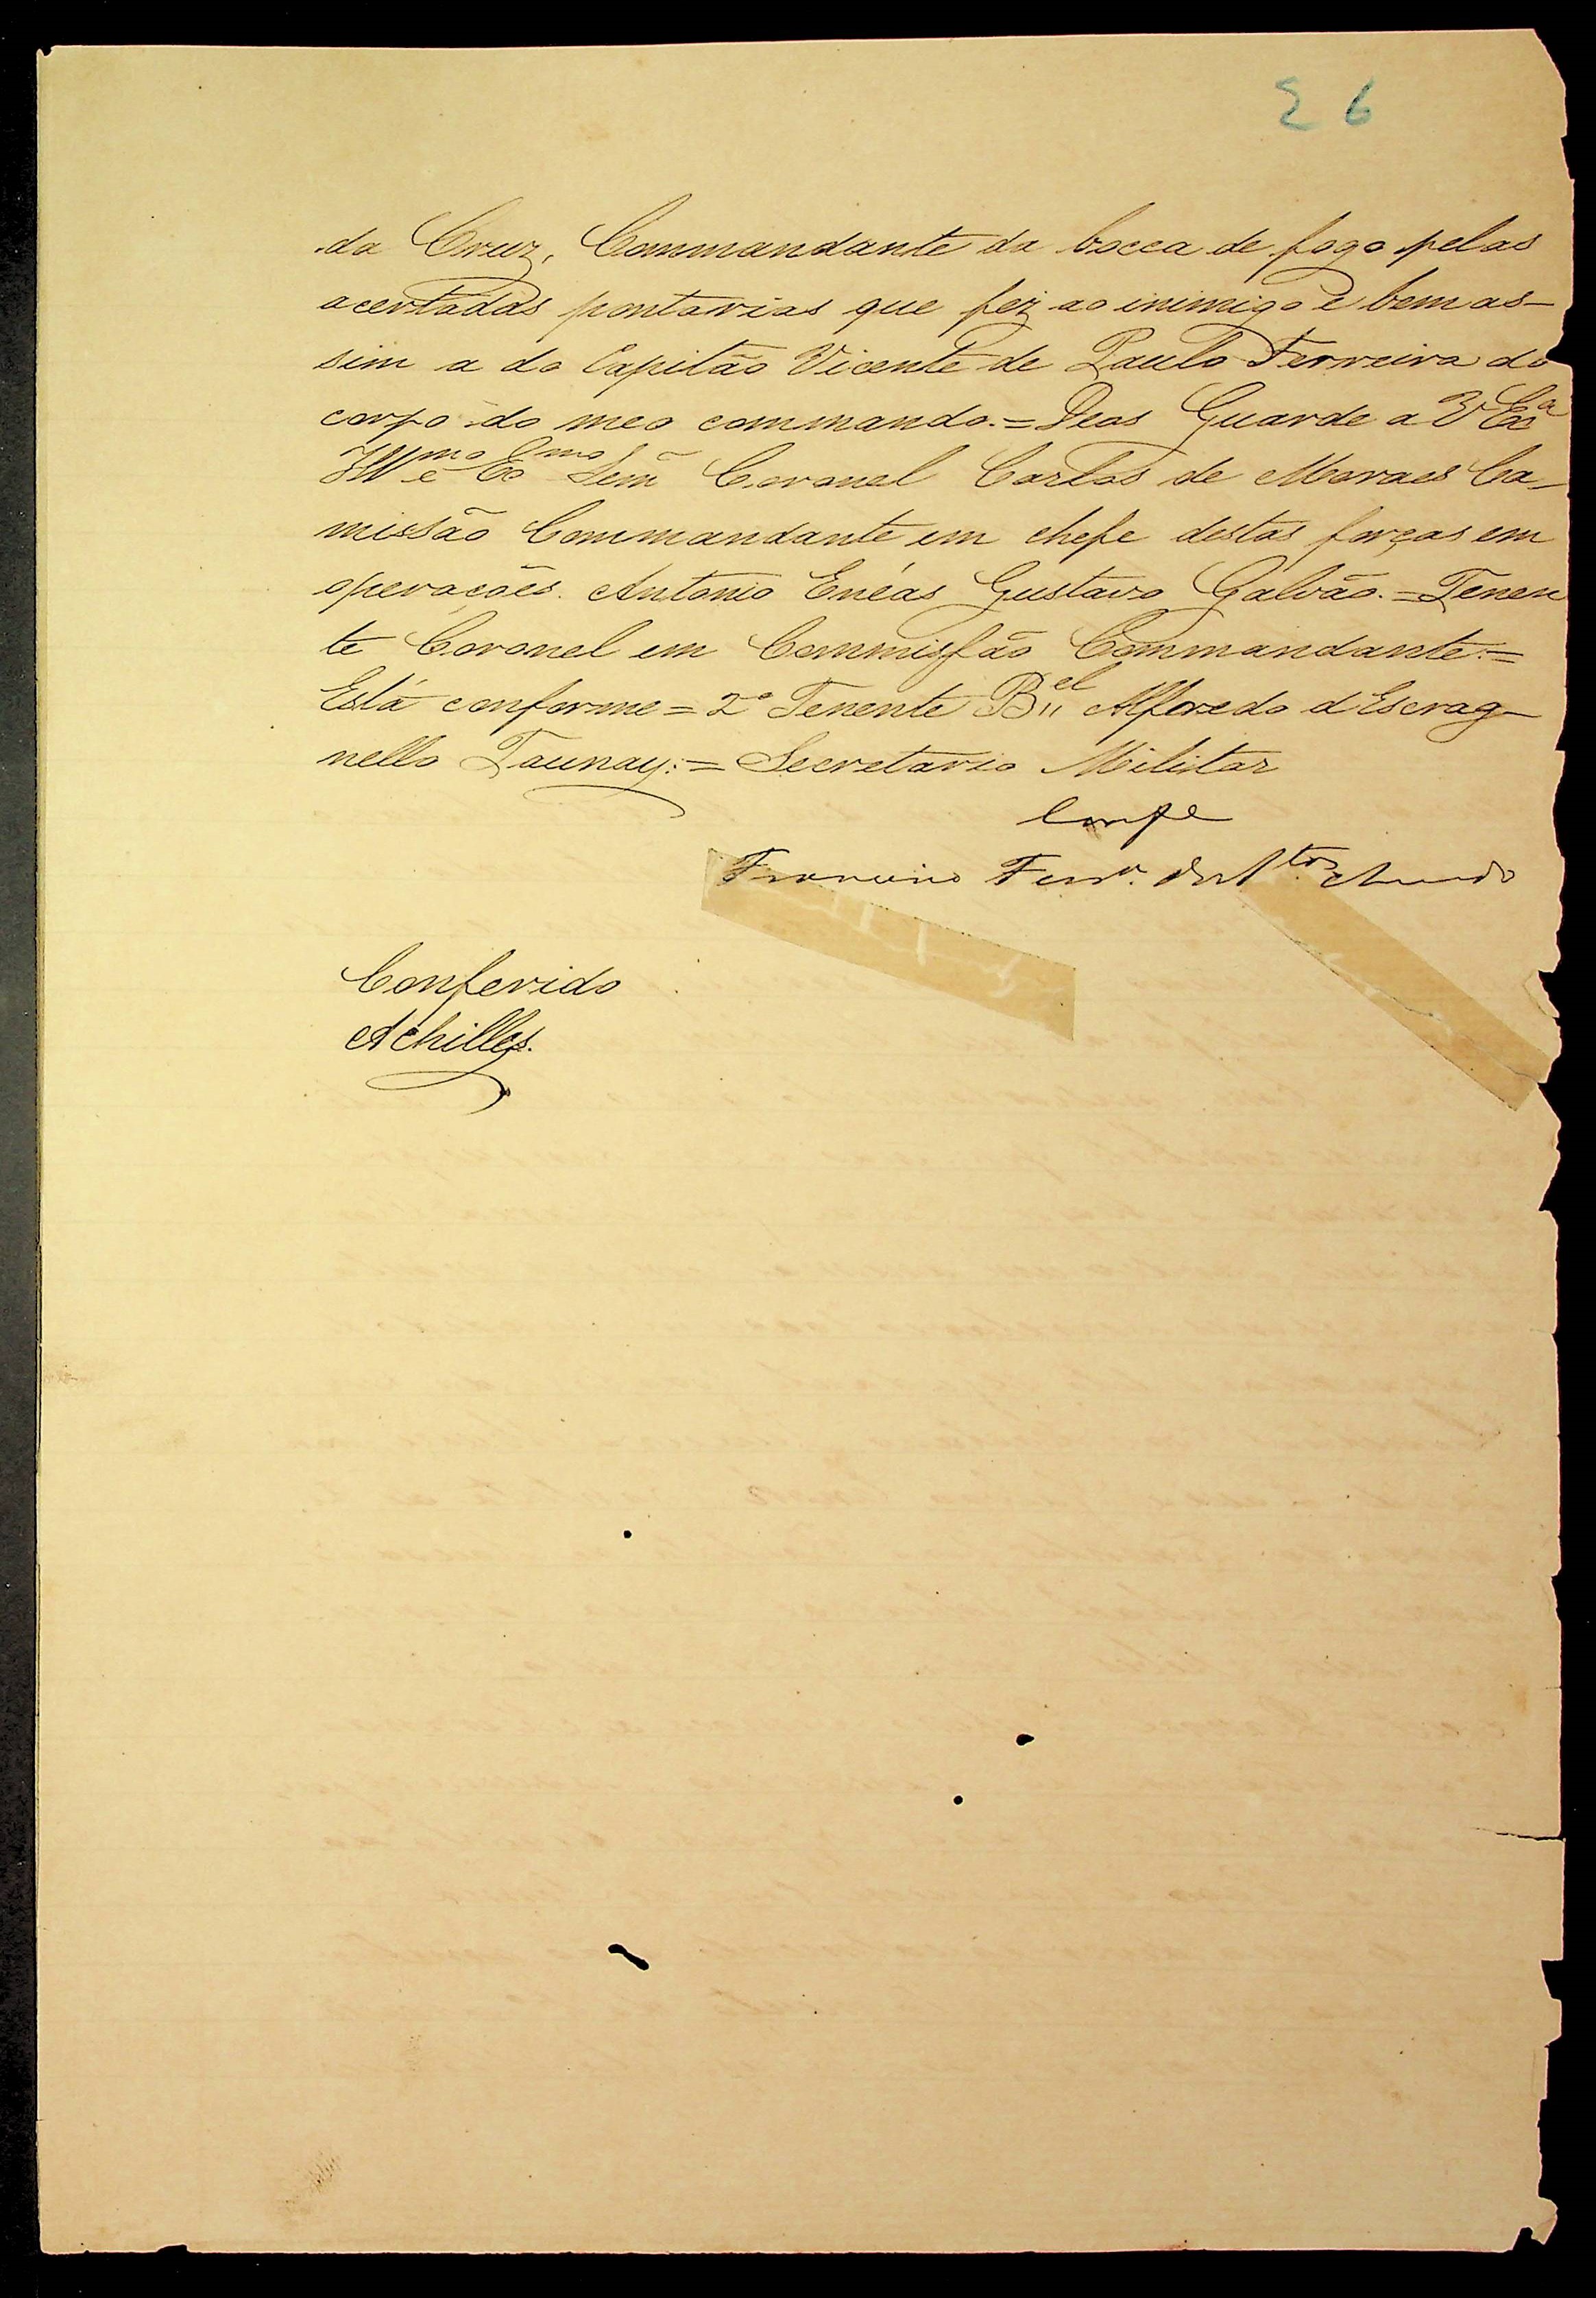 26
da Cruz, Commandante da bocca de fogo pelas
acertadas pontarias que fez ao inimigo e bem as-
sim a do Capitão Vicente de Paulo Ferreira do
corpo do meo commando.=Deos Guarde a V Exª
Illmo e Exmo Senr̃ Coronel Carlos de Moraes Ca-
missão Commandante em chefe destas forças em
operações. Antonio Enéas Gustavo Galvão.=Tenen
te Coronel em Commissão Commandante.=
Está conforme=2º Tenente Bel Alfredo d'Escrag-
nello Taunay:=Secretario Militar
Confe
Ferrª
Conferido
Achilles.